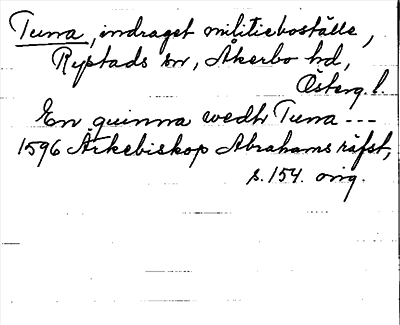 Tuna, indraget militieboställe,
Rystads sn, Åkerbo hd,
Österg. l.
En quinna wedh Tuna ---
1596 Ärkebiskop Abrahams räfst,
s. 154. orig.